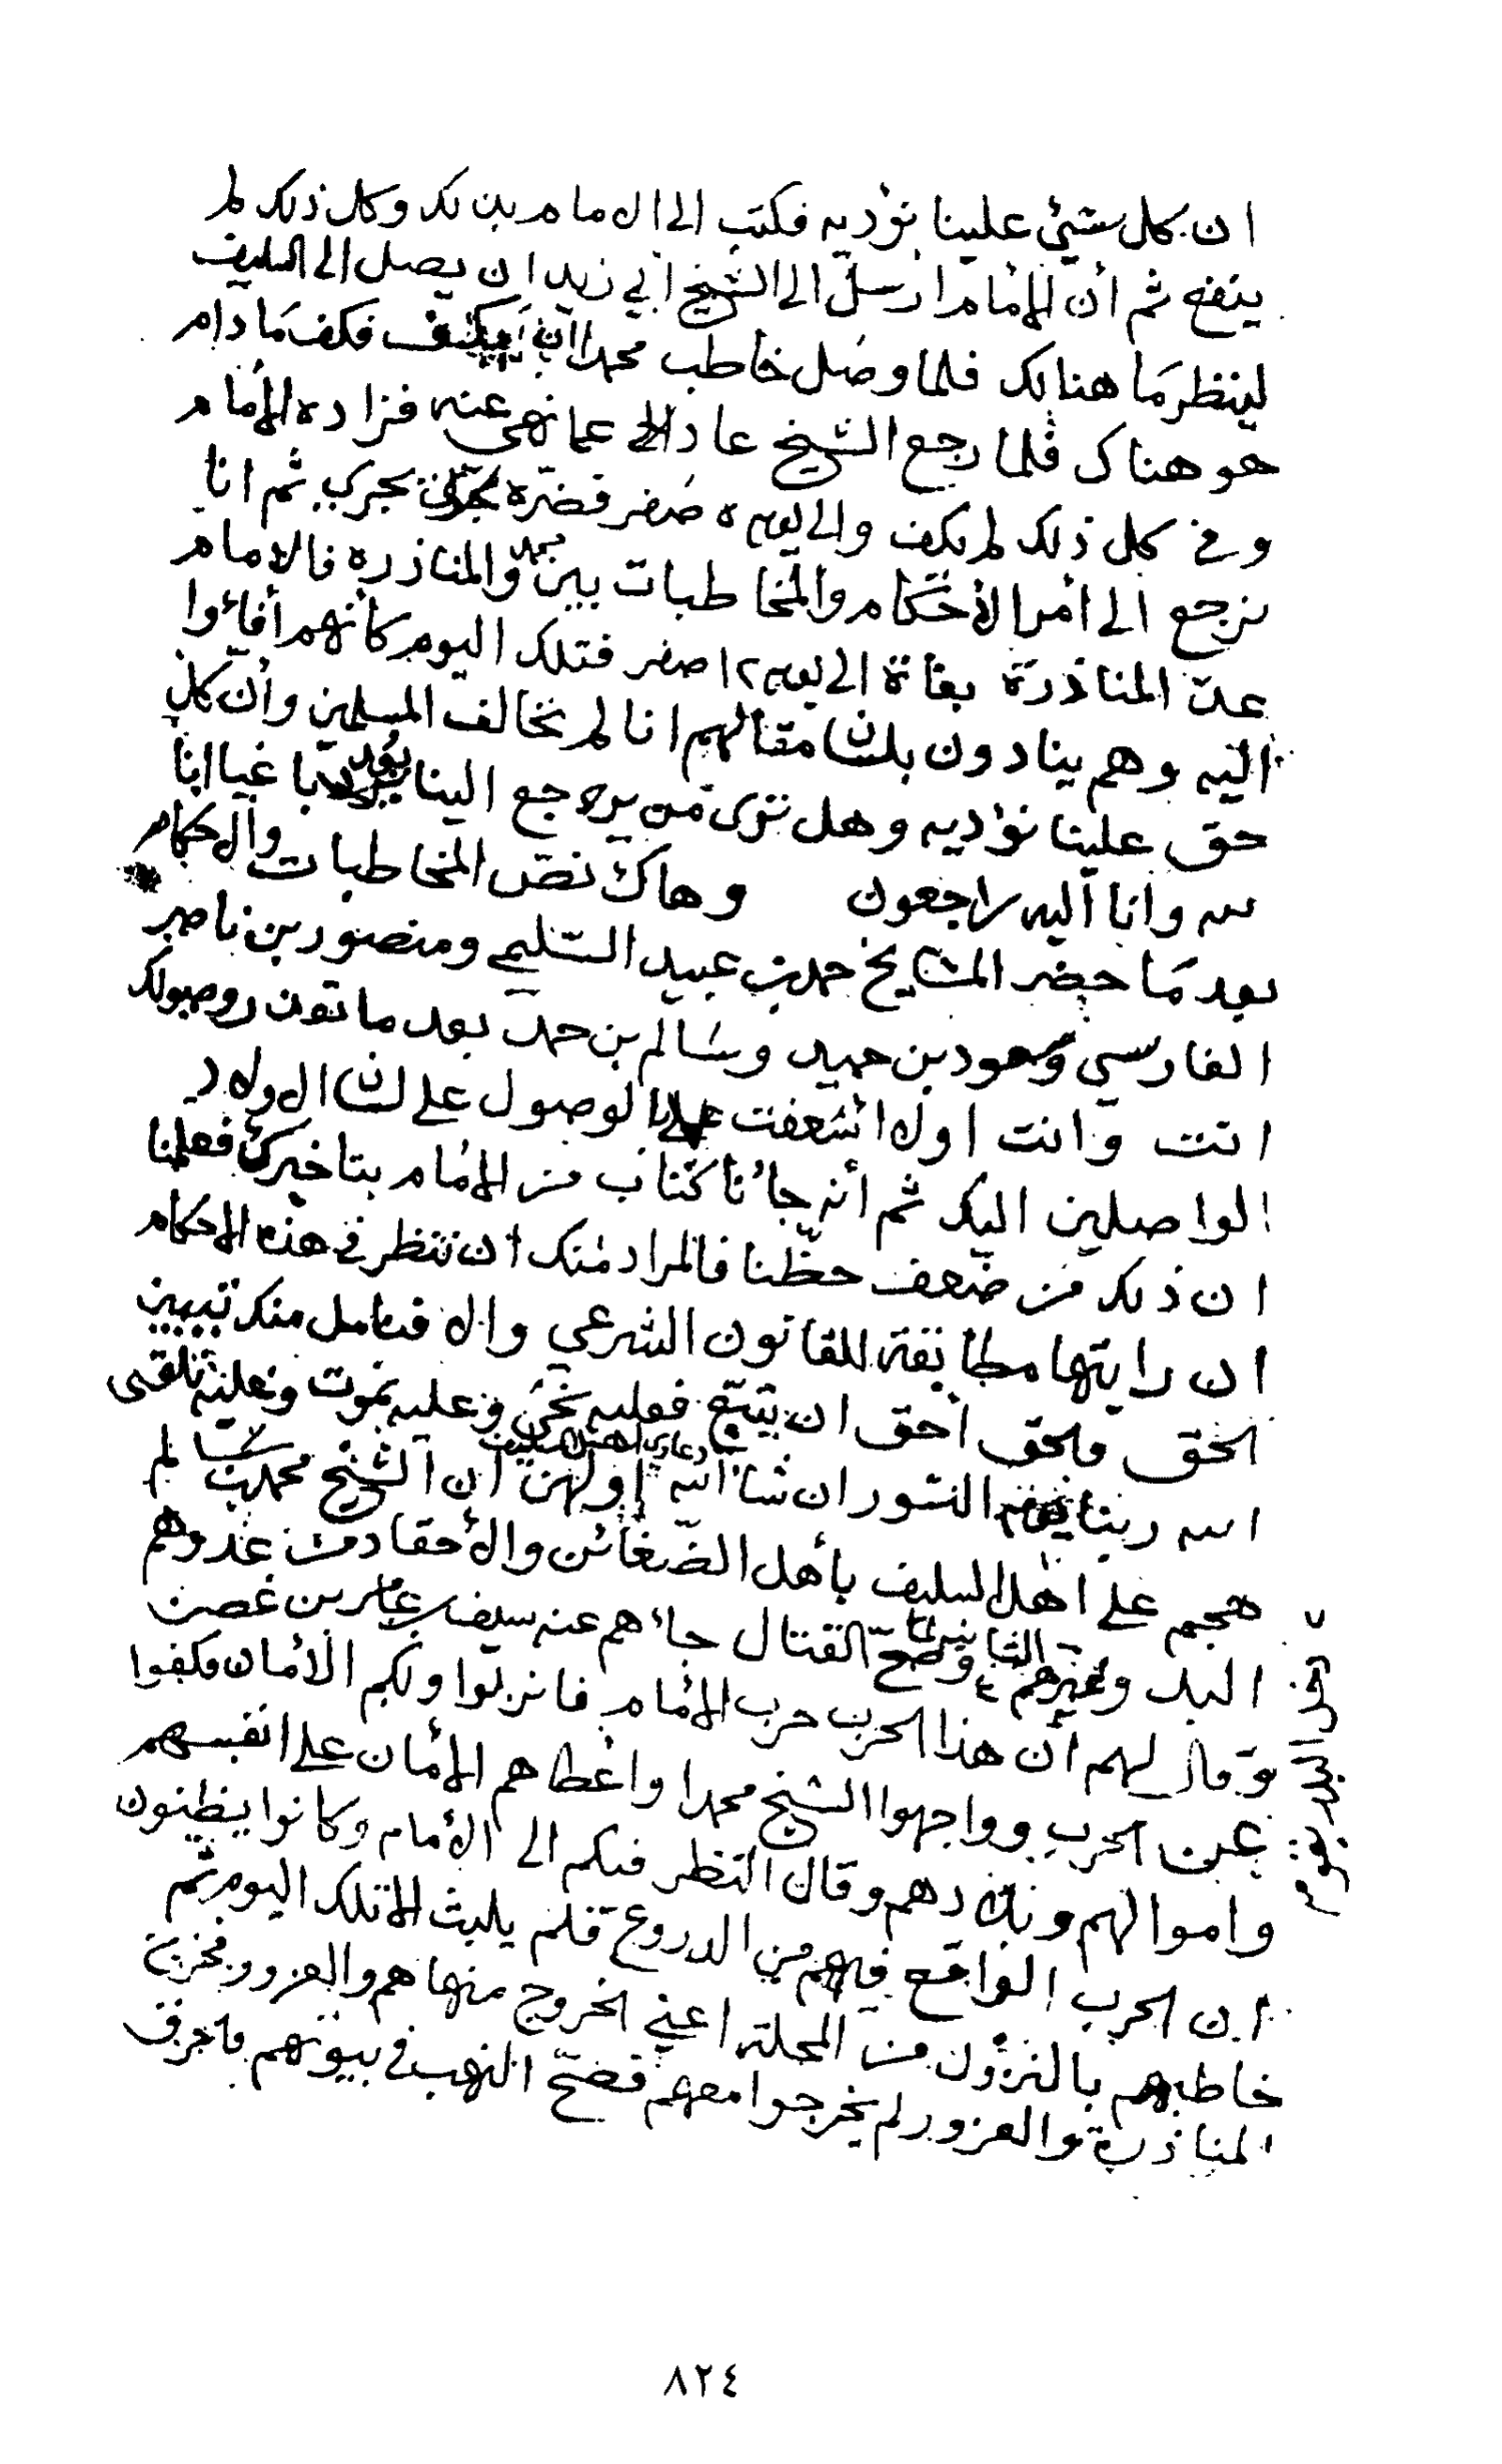 ان كل شيئ علينا نؤديه فكتب الى الامام بذلك وكل ذلك لم
ينفع ثم أن الأمام ارسل الى الشيخ ابي زيد ان يصل الى السليف
لينظر ما هنالك فلما وصل خاطب محمدا ان يكف فكف ما دام
هو هناك فلما رجع الشيخ عاد الى عما نهى عنه فزاده الأمام
وفي كل ذلك لم يكف والى يوم ٥ صفر قضية تجري ثم انا
نرجع الى أمر الأحكام والمخاطبات بين محمد والمناذرة فالامام
عد المناذرة بغاة الى يوم ١٢ صفر فتلك اليوم كأنهم أفاؤا
اليه وهم ينادون بلسان مقالهم انا لم نخالف المسلمين وأن كل
حق علينا نؤديه وهل ترى من يرجع الينا يعد باغيا انا
لله وانا اليه راجعون وهاك نص المخاطبات والاحكام
بعد ما حضر المشايخ حمد بن عبيد السليمي ومنصور بن ناصر
الفارسي وسعود بن حميد وسالم بن حمد بعد ما تقرر وصولك
انت وانت اولا أسعفت بالوصول على لسان الاولاد
الواصلين اليك ثم أنه جاءنا كتاب من الإمام بتأخيرك فعلمنا
ان ذلك من ضعف حظنا فالمراد منك ان تنظر في هذه الاحكام
ان رايتها مطابقة للقانون الشرعي والا فنامل منك تبيين
الحق فالحق أحق ان يتبع فعليه نحن وعليه نموت وعليه نلقى
الله ربنا يوم النشور ان شاء الله دعاوي اهل السليف اولهن ان الشيخ محمد بن سالم
هجم على اهل السليف بأهل الضغائن والأحقاد من عدوهم
البلد وغيرهم وصح القتال جاءهم عنه سيف بن عامر بن غصن
وقال لهم ان هذا الحرب حرب الأمام فانزلوا ولكم الأمان فكفوا
عن الحرب وواجهوا الشيخ محمدا واعطاهم الأمان على انفسهم
واموالهم وبلادهم وقال النظر فيكم الى الأمام وكانوا يظنون
ان الحرب الواقع فيهم من الدروع فلم يلبث الا تلك اليوم ثم
خاطبهم بالنزول من المحلة اعني الخروج منها هم والعزور فخرجت
المناذرة والعزور لم يخرجوا معهم فصح النهب في بيوتهم فاحرق
٨٢٤